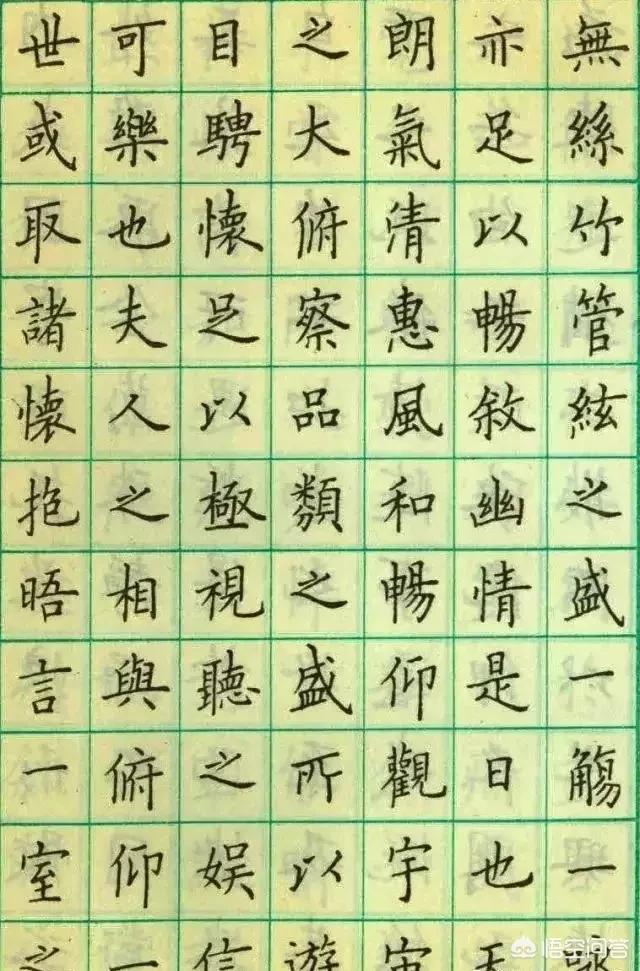 無絲竹管絃之盛一觴一詠
亦足以暢敘幽情是日也天
朗氣清惠風和暢仰觀宇宙
之大俯察品類之盛所以遊
目騁懷足以極視聽之娱信
可樂也夫人之相與俯仰一
世或取諸懷抱晤言一室之
悟空问答